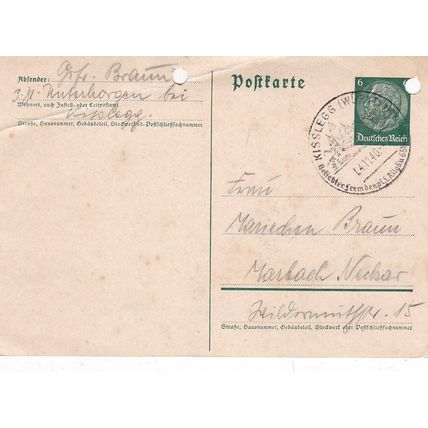 Absender: Gefr. Braun
z. Zt. Unterhorgen bei
Wohnort, auch Zustell- oder Leitpostamt
Kisslegg.
Straße, Hausnummer, Gebäudeteil, Stockwerk od. Postschließfachnummer
Postkarte
6
Deutsches Reich
KISSLEGG (WÜ
4.11.40.
Beliebter Fremdenpl. i. Allgäu 65
Frau
Mariechen Braun
Marbach Neckar
Wildermuthstr. 15
Straße, Hausnummer, Gebäudeteil, Stockwerk oder Postschließfachnummer